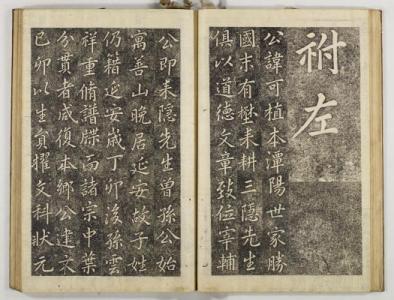 祔左
公諱可植本潭陽世家勝
國末有埜耒耕三隱先生
俱以道德文章致位宰輔
公即耒隱先生曾孫公始
寓善山晚居延安故子姓
仍籍延安歲丁卯後孫雲
祥重脩譜牒而諸宗中葉
分貫者咸復本鄉公建文
己卯以生員擢文科狀元